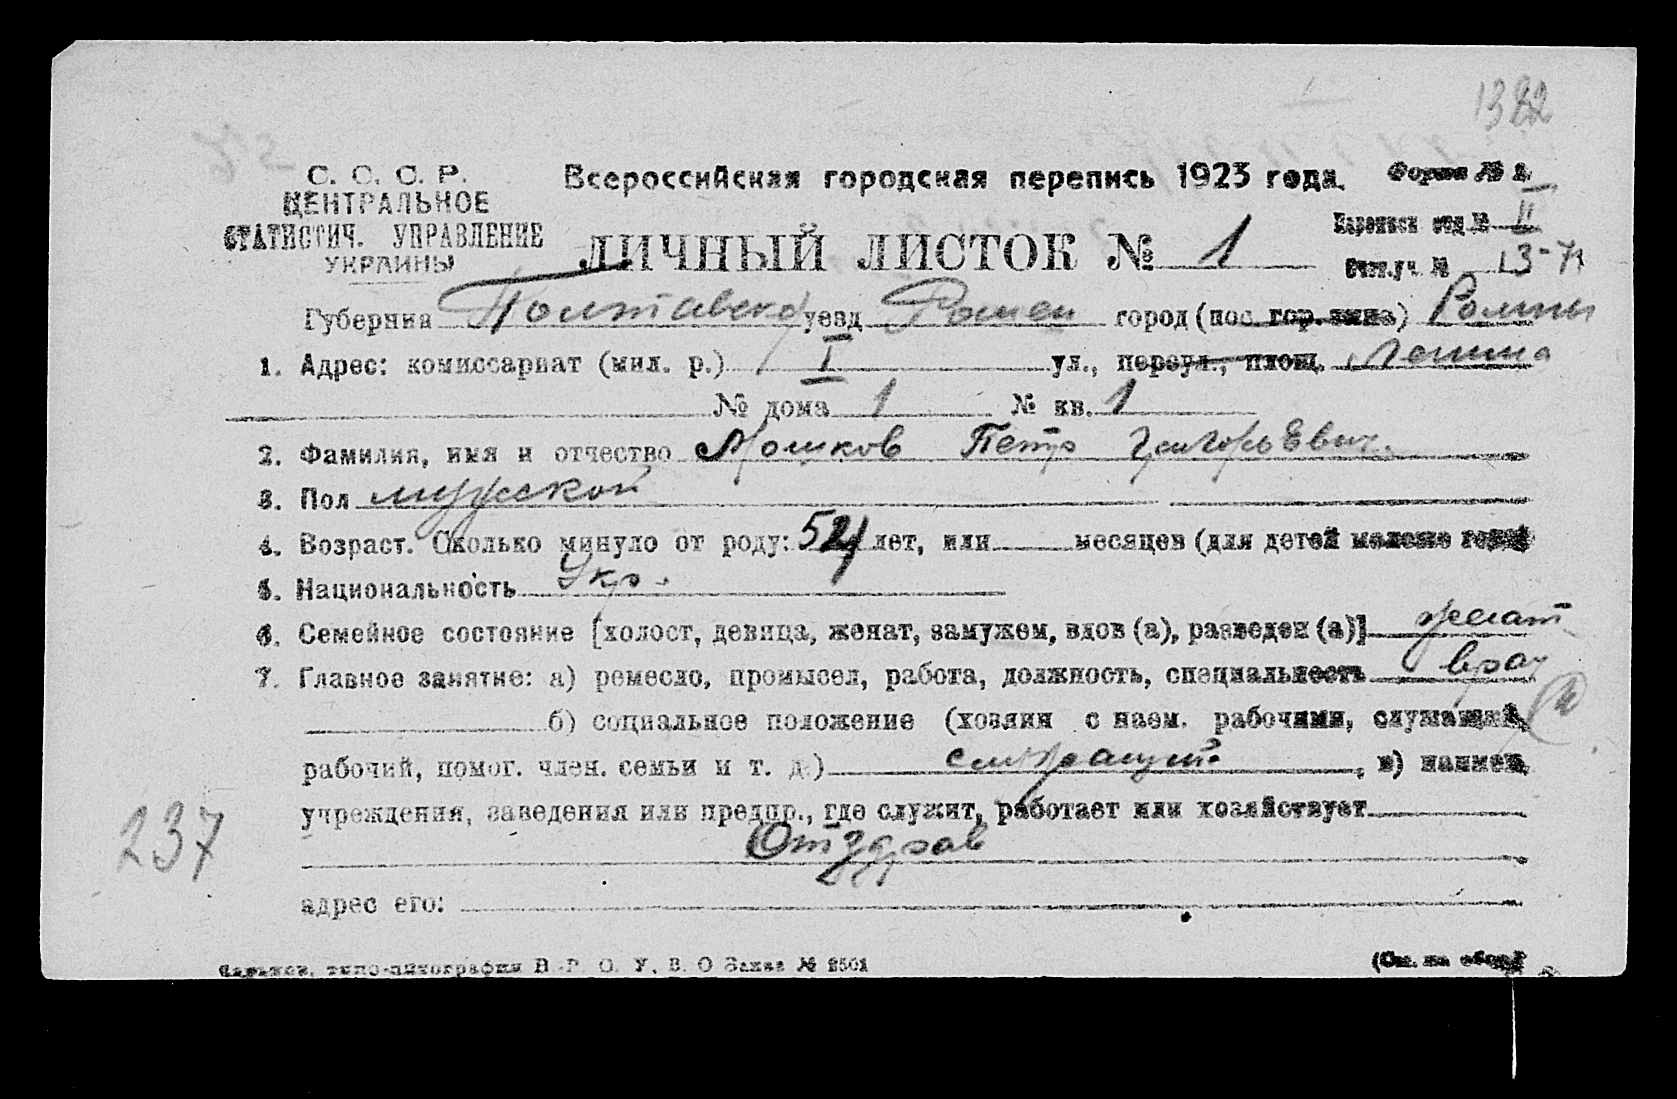 1322
С. С. С. Р.
ЦЕНТРАЛЬНОЕ
СТАТИСТИЧ. УПРАВЛЕНИЕ
УКРАИНЫ
Всероссийская городская перепись 1923 года.
Форма № 2.
ЛИЧНЫЙ ЛИСТОК № 1
Переписн отд № II
Счетн.уч. №
Губерния Полтавск уезд Ромен город (пос. гор. типа) Ромны
1. Адрес: комиссариат (мил. р.) I ул., переул., площ. Ленина
№ дома 1 № кв. 1
2. Фамилия, имя и отчество Мошков Петр Григорьевич.
3. Пол мужской
4. Возраст. Сколько минуло от роду: 52 лет, или месяцев (для детей моложе года)
5. Национальность Укр.
6. Семейное состояние [холост, девица, женат, замужем, вдов (а), разведен (а)] женат
7. Главное занятие: а) ремесло, промысел, работа, должность, специальность врач
б) социальное положение (хозяин с наем. рабочими, служащий,
рабочий, помог. член. семьи и т. д.) служащий, в) наимен.
учреждения, заведения или предпр., где служит, работает или хозяйствует
Отздрав
адрес его:
237
Харьков, типо-литография В. Р. О. У. В. О Заказ № 2501
(См. на обор.)